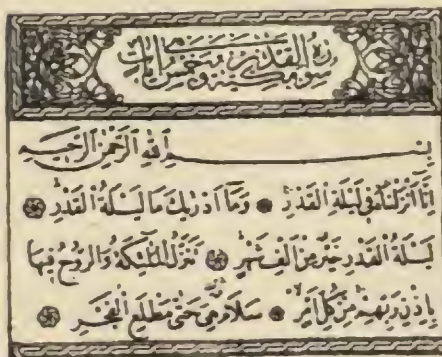 سورة القدر مكية وهي خمس ايات
بسم الله الرحمن الرحيم
اِنَّٓا اَنْزَلْنَاهُ فٖى لَيْلَةِ الْقَدْرِ ۞ وَمَٓا اَدْرٰيكَ مَا لَيْلَةُ الْقَدْرِ ۞
لَيْلَةُ الْقَدْرِ خَيْرٌ مِنْ اَلْفِ شَهْرٍ ۞ تَنَزَّلُ الْمَلٰٓئِكَةُ وَالرُّوحُ فٖيهَا
بِاِذْنِ رَبِّهِمْ مِنْ كُلِّ اَمْرٍ ۞ سَلَامٌ هِىَ حَتّٰى مَطْلَعِ الْفَجْرِ ۞